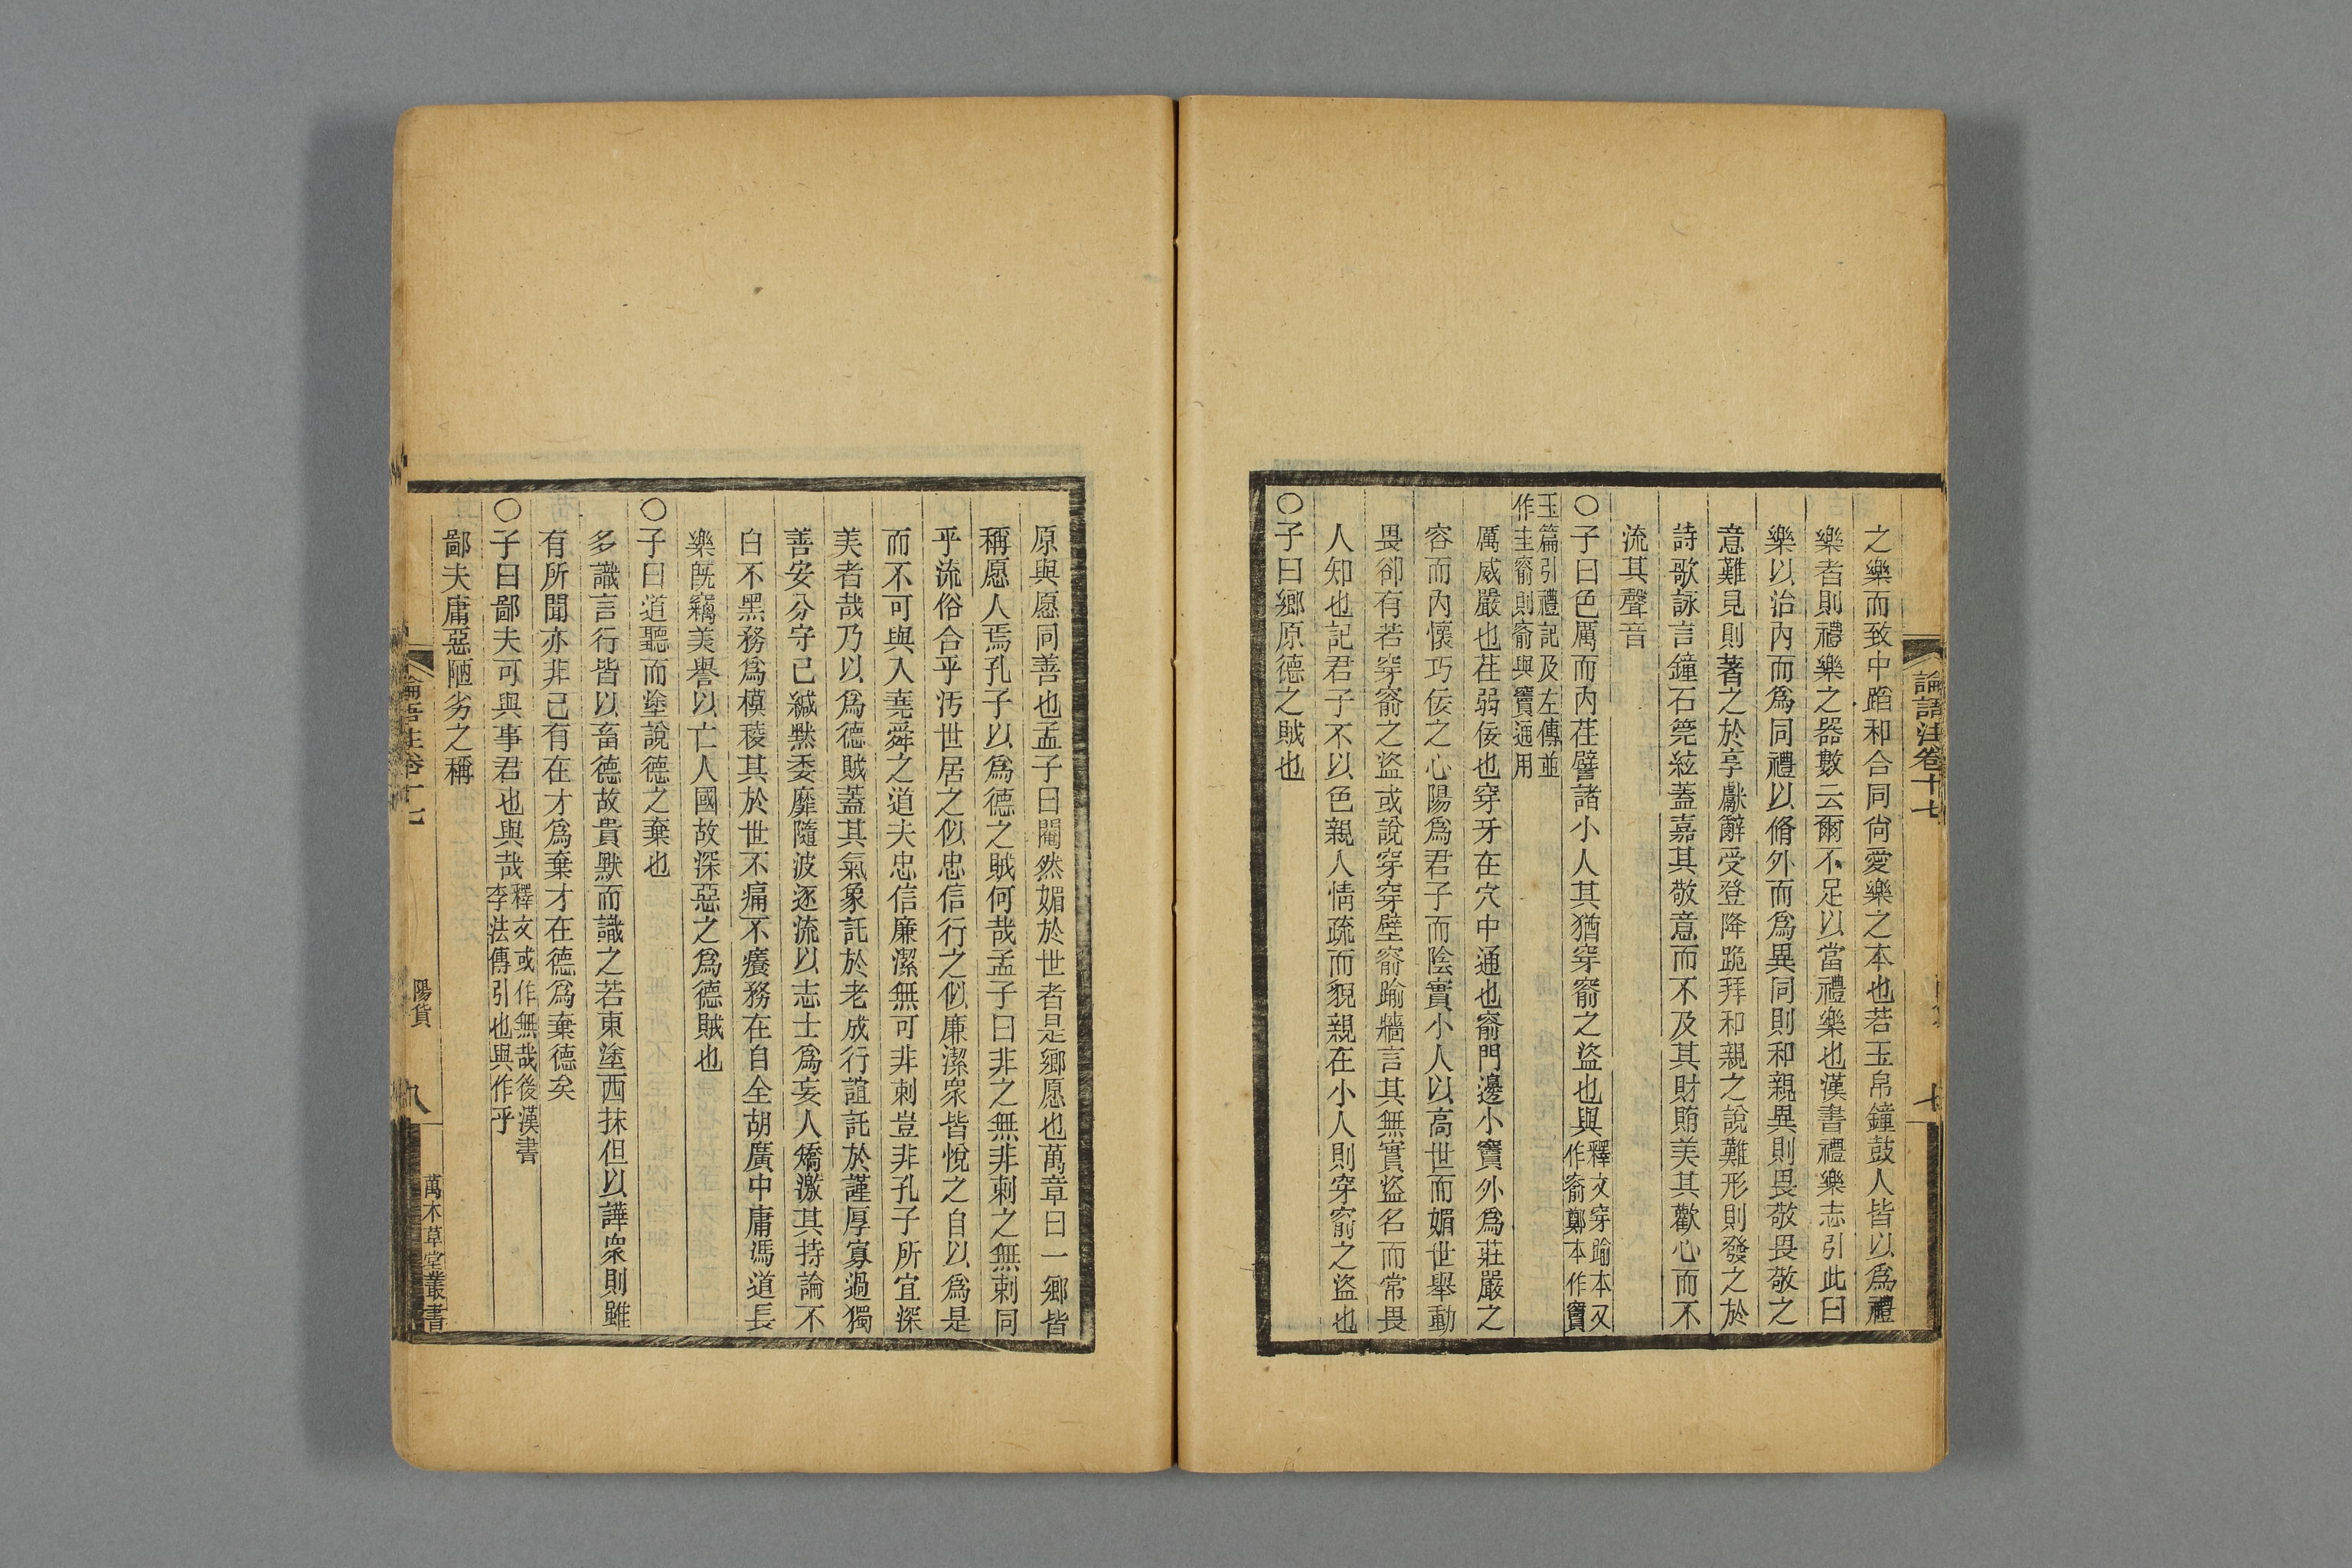 論語注卷十七
七
之樂而致中蹈和合同尙愛樂之本也若玉帛鐘鼓人皆以爲禮
樂者則禮樂之器數云爾不足以當禮樂也漢書禮樂志引此曰
樂以治內而爲同禮以脩外而爲異同則和親異則畏敬畏敬之
意難見則著之於享獻辭受登降跪拜和親之說難形則發之於
詩歌詠言鐘石筦絃蓋嘉其敬意而不及其財賄美其歡心而不
流其聲音
〇子曰色厲而內荏譬諸小人其猶穿窬之盜也與釋文穿踰本又
作窬鄭本作竇
玉篇引禮記及左傳並
作圭窬則窬與竇通用
厲威嚴也荏弱佞也穿牙在穴中通也窬門邊小竇外爲莊嚴之
容而內懷巧佞之心陽爲君子而陰實小人以高世而媚世舉動
畏卻有若穿窬之盜或說穿穿壁窬踰牆言其無實盜名而常畏
人知也記君子不以色親人情疏而貌親在小人則穿窬之盜也
〇子曰鄉原德之賊也
原與愿同善也孟子曰閹然媚於世者是鄉愿也萬章曰一鄉皆
稱愿人焉孔子以爲德之賊何哉孟子曰非之無非刺之無刺同
乎流俗合乎汚世居之似忠信行之似廉潔衆皆悅之自以爲是
而不可與入堯舜之道夫忠信廉潔無可非刺豈非孔子所宜深
美者哉乃以爲德賊蓋其氣象託於老成行誼託於謹厚寡過獨
善安分守己緘默委靡隨波逐流以志士爲妄人矯激其持論不
白不黑務爲模稜其於世不痛不癢務在自全胡廣中庸馮道長
樂旣竊美譽以亡人國故深惡之爲德賊也
〇子曰道聽而塗說德之棄也
多識言行皆以畜德故貴默而識之若東塗西抹但以譁衆則雖
有所聞亦非己有在才爲棄才在德爲棄德矣
〇子曰鄙夫可與事君也與哉釋文或作無哉後漢書
李法傳引也與作乎
鄙夫庸惡陋劣之稱
論語注卷十七
陽貨
八
萬木草堂叢書